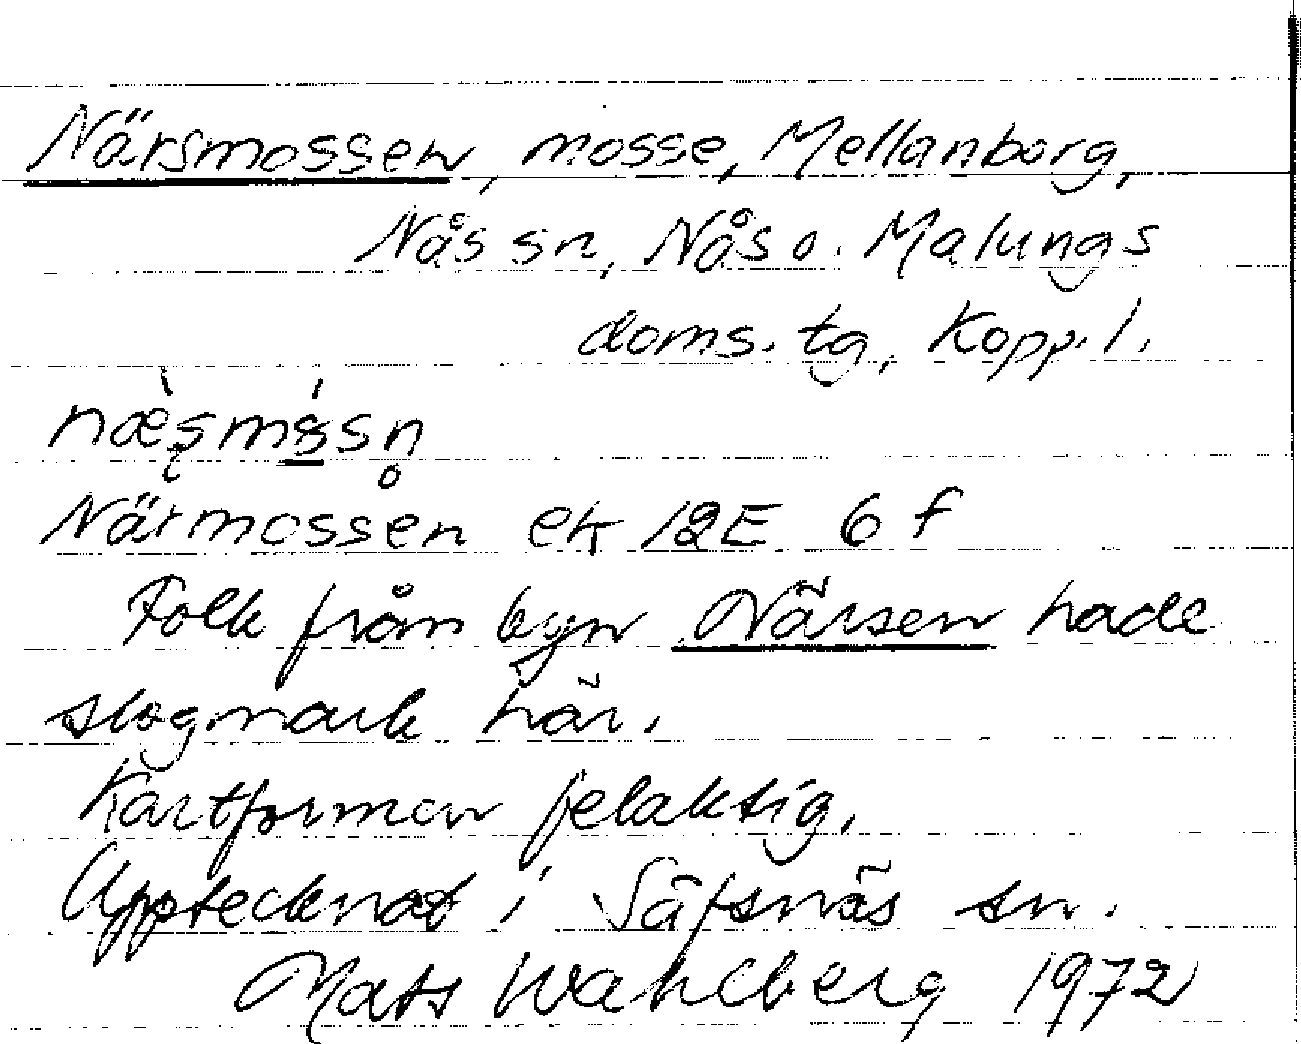 Närsmossen, mosse, Mellanborg,
Nås sn, Nås o. Malungs
doms. tg, Kopp. l.
Närmossen ek 12E 6 f
Folk från byn Närsen hade
slogmark här.
Kartformen felaktig.
Upptecknat i Säfsnäs sn.
Mats Wahlberg 1972